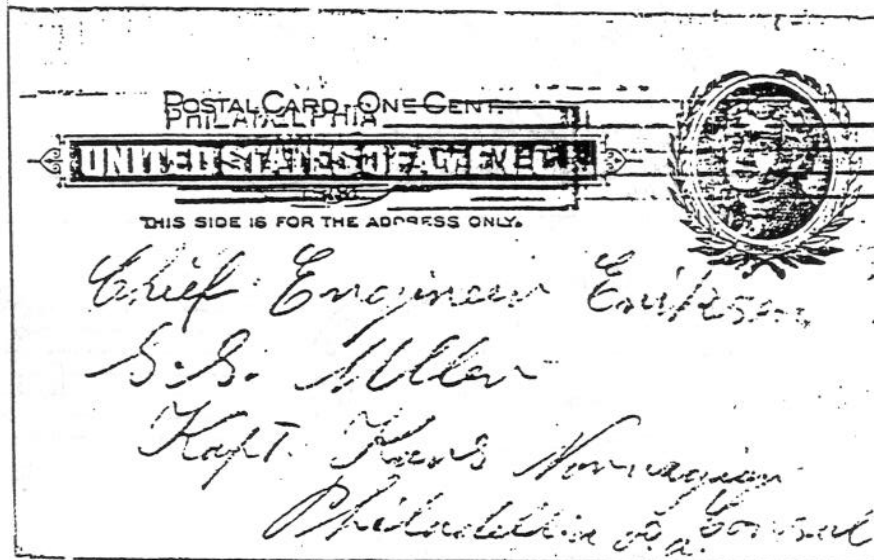 POSTAL CARD - ONE CENT.
PHILADELPHIA
UNITED STATES OF AMERICA
THIS SIDE IS FOR THE ADDRESS ONLY.
Chief Engineer Eriksen
S.S. Uller
Kapt.
Consul